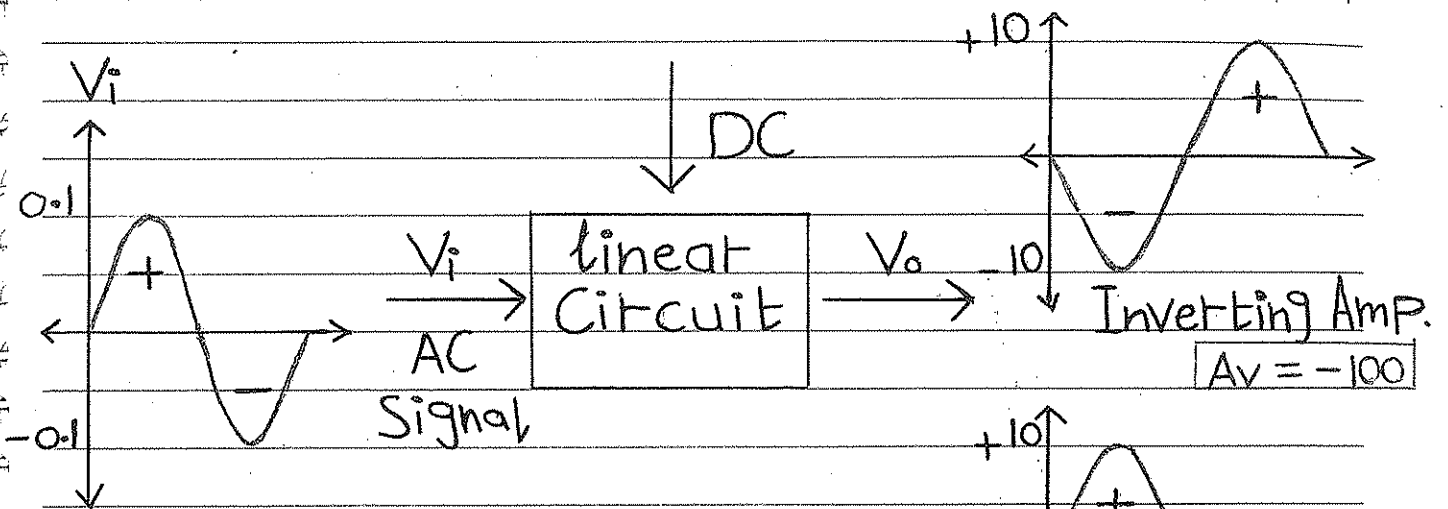 Vi
0.1
+
-
-0.1
Vi
AC
Signal
DC
linear
Circuit
Vo
+10
+
-
-10
Inverting Amp.
Av = -100
+10
+